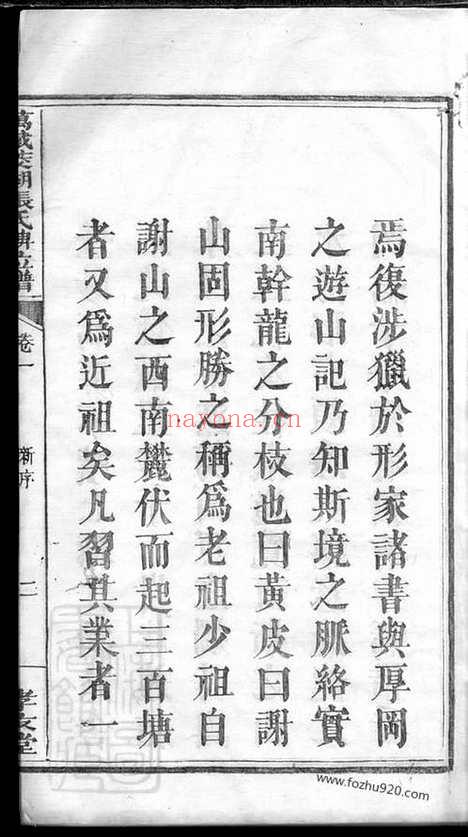 焉復涉獵於形家諸書與厚岡
之遊山記乃知斯境之脈絡實
南幹龍之分枝也曰黃皮曰謝
山固形勝之稱爲老祖少祖自
謝山之西南麓伏而起三百塘
者又爲近祖矣凡習其業者一
卷一
新序
二
孝友堂
nayona.cn
www.fozhu920.com